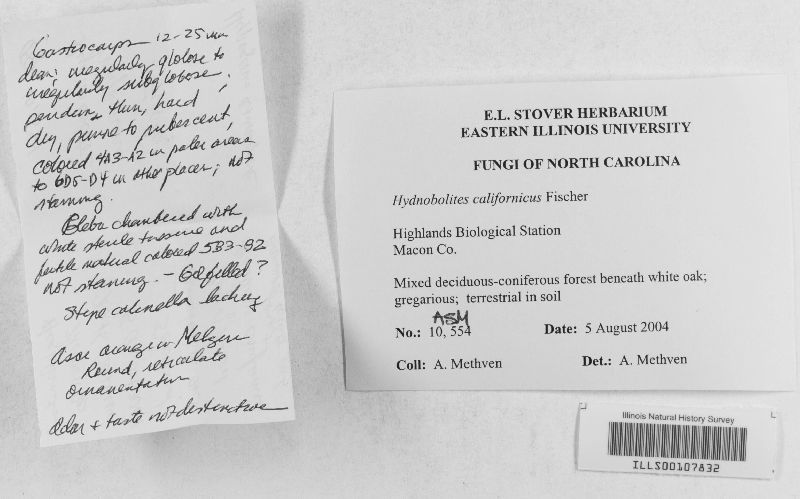 Gastrocarps 12-25 mm
irregularly globose to
irregularly subglobose;
thin, hard,
dry, to pubescent,
colored 4A3-A2 in paler areas
to 6D5-D4 in other places; not
staining.
Gleba chambered with
white sterile tissue and
fertile material colored 5B3-B2
not staining. - Gel filled?
Stipe columella lacking
Asci orange in Melzers
Round, reticulate
ornamentation
Odor + taste not distinctive
E.L. STOVER HERBARIUM
EASTERN ILLINOIS UNIVERSITY
FUNGI OF NORTH CAROLINA
Hydnobolites californicus Fischer
Highlands Biological Station
Macon Co.
Mixed deciduous-coniferous forest beneath white oak;
gregarious; terrestrial in soil
ASM
No.: 10, 554 Date: 5 August 2004
Coll: A. Methven Det.: A. Methven
Illinois Natural History Survey
ILLS00107832